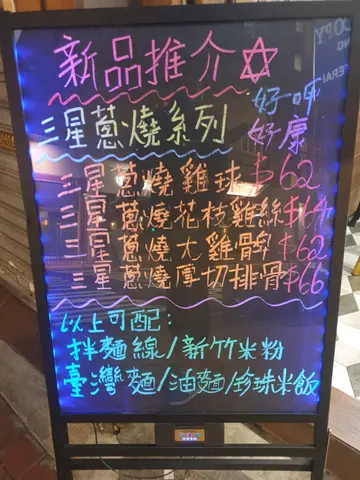 新品推介
好呷
三星蔥燒系列
好康
三星蔥燒雞球 $62
三星蔥燒花枝雞絲$64
三星蔥燒大雞髀$62
三星蔥燒厚切排骨$66
以上可配:
拌麵線/新竹米粉
臺灣麵/油麵/珍珠米飯